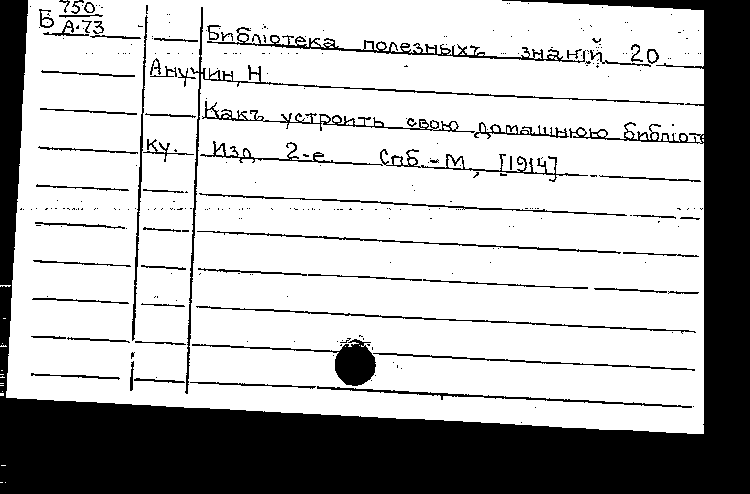 Б 750
А-73
Библіотека полезныхъ знаній. 20.
Анучин, Н.
Какъ устроить свою домашнюю библіоте
ку. Изд. 2-е. Спб.-М., [1914]